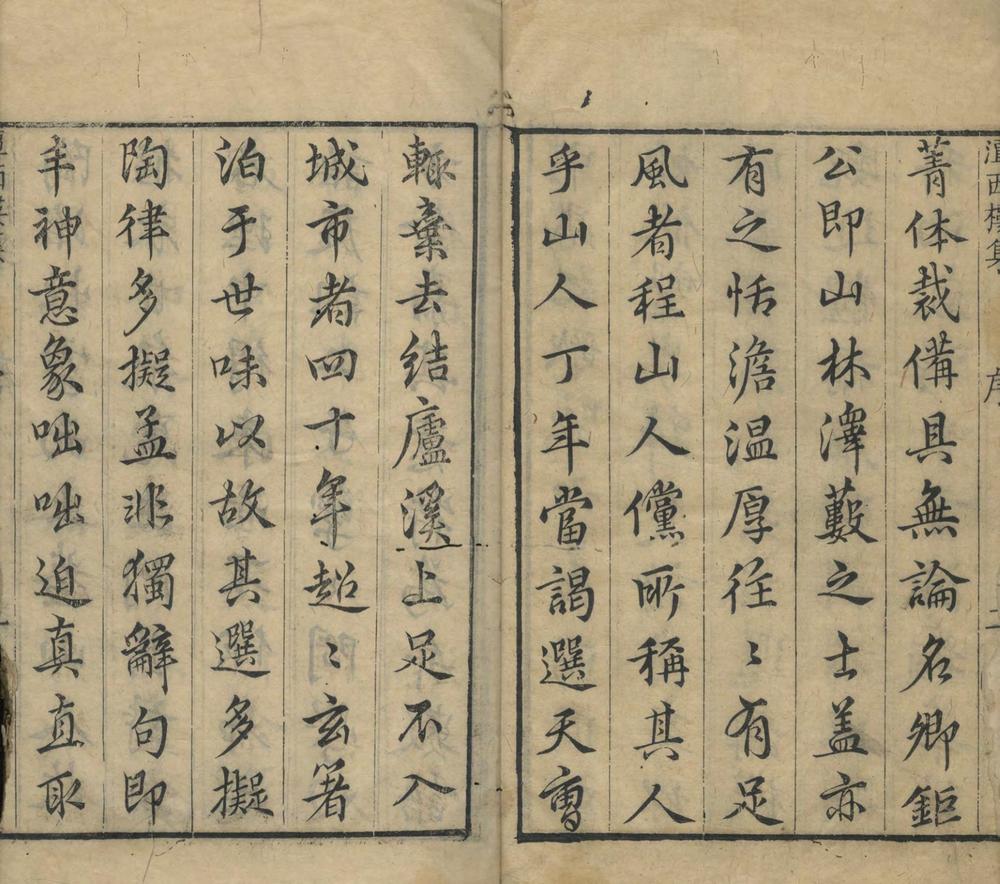 序
菁体裁備具無論名卿鉅
公即山林澤藪之士盖亦
有之恬澹温厚往〻有足
風者程山人儻所稱其人
乎山人丁年當謁選天曹
輙棄去結廬溪上足不入
城市者四十年超〻玄箸
泊于世味以故其選多擬
陶律多擬孟非獨辭句即
丰神意象咄咄迫真直取